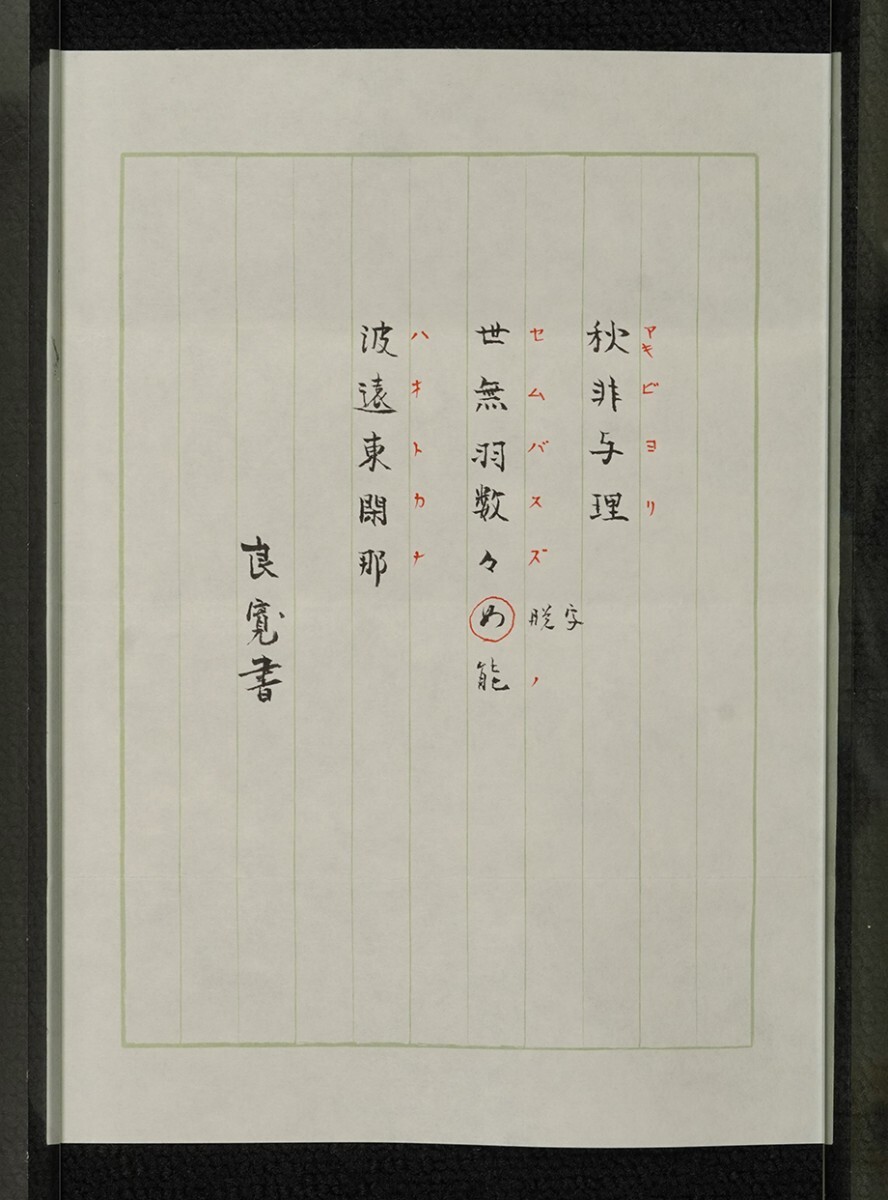 アキビヨリ
秋非与理
セムバスズ脱字ノ
世無羽数々め能
ハオトカナ
波遠東閑那
良寛書